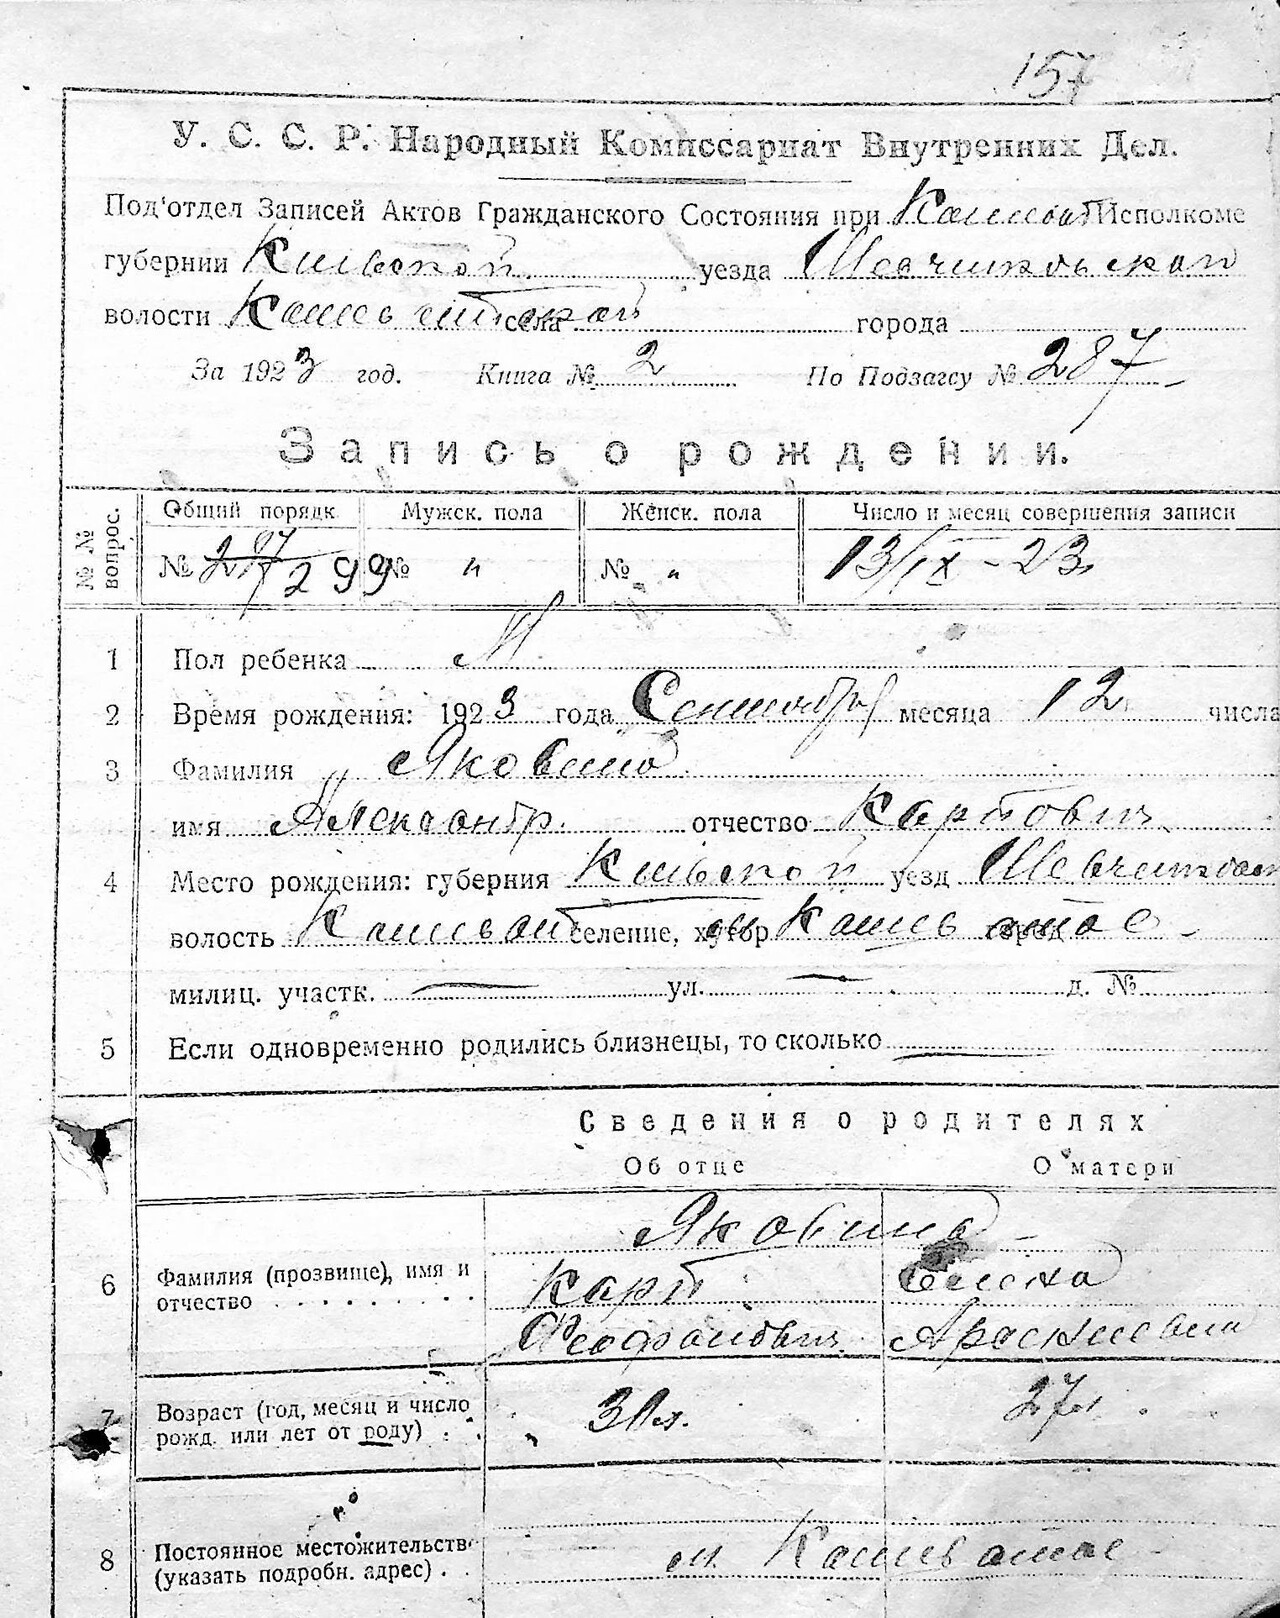 157
У. С. С. Р. Народный Комиссариат Внутренних Дел.
Под'отдел Записей Актов Гражданского Состояния при Кошеват Исполкоме
губернии Киевской уезда Шевченковского
волости Кошеватской села города
За 1923 год. Книга № 2 По Подзагсу № 287
Запись о рождении.
№ № вопрос. Общий порядк. Мужск. пола Женск. пола Число и месяц совершения записи
№ 287 299 № " № " 13/IX - 23
1 Пол ребенка М.
2 Время рождения: 1923 года Сентября месяца 12 числа
3 Фамилия Яковина
имя Александр. отчество Карпович
4 Место рождения: губерния Киевской уезд
волость Кошеват селение, хутор м Кошеватое город
милиц. участк. — ул. — д. № —
5 Если одновременно родились близнецы, то сколько —
Сведения о родителях
Об отце О матери
Яковина
6 Фамилия (прозвище), имя и отчество Карп Елена
Феофанович Арсениевна
7 Возраст (год, месяц и число рожд. или лет от роду) 31 л. 27 л.
8 Постоянное местожительство (указать подробн. адрес) м. Кошеватое